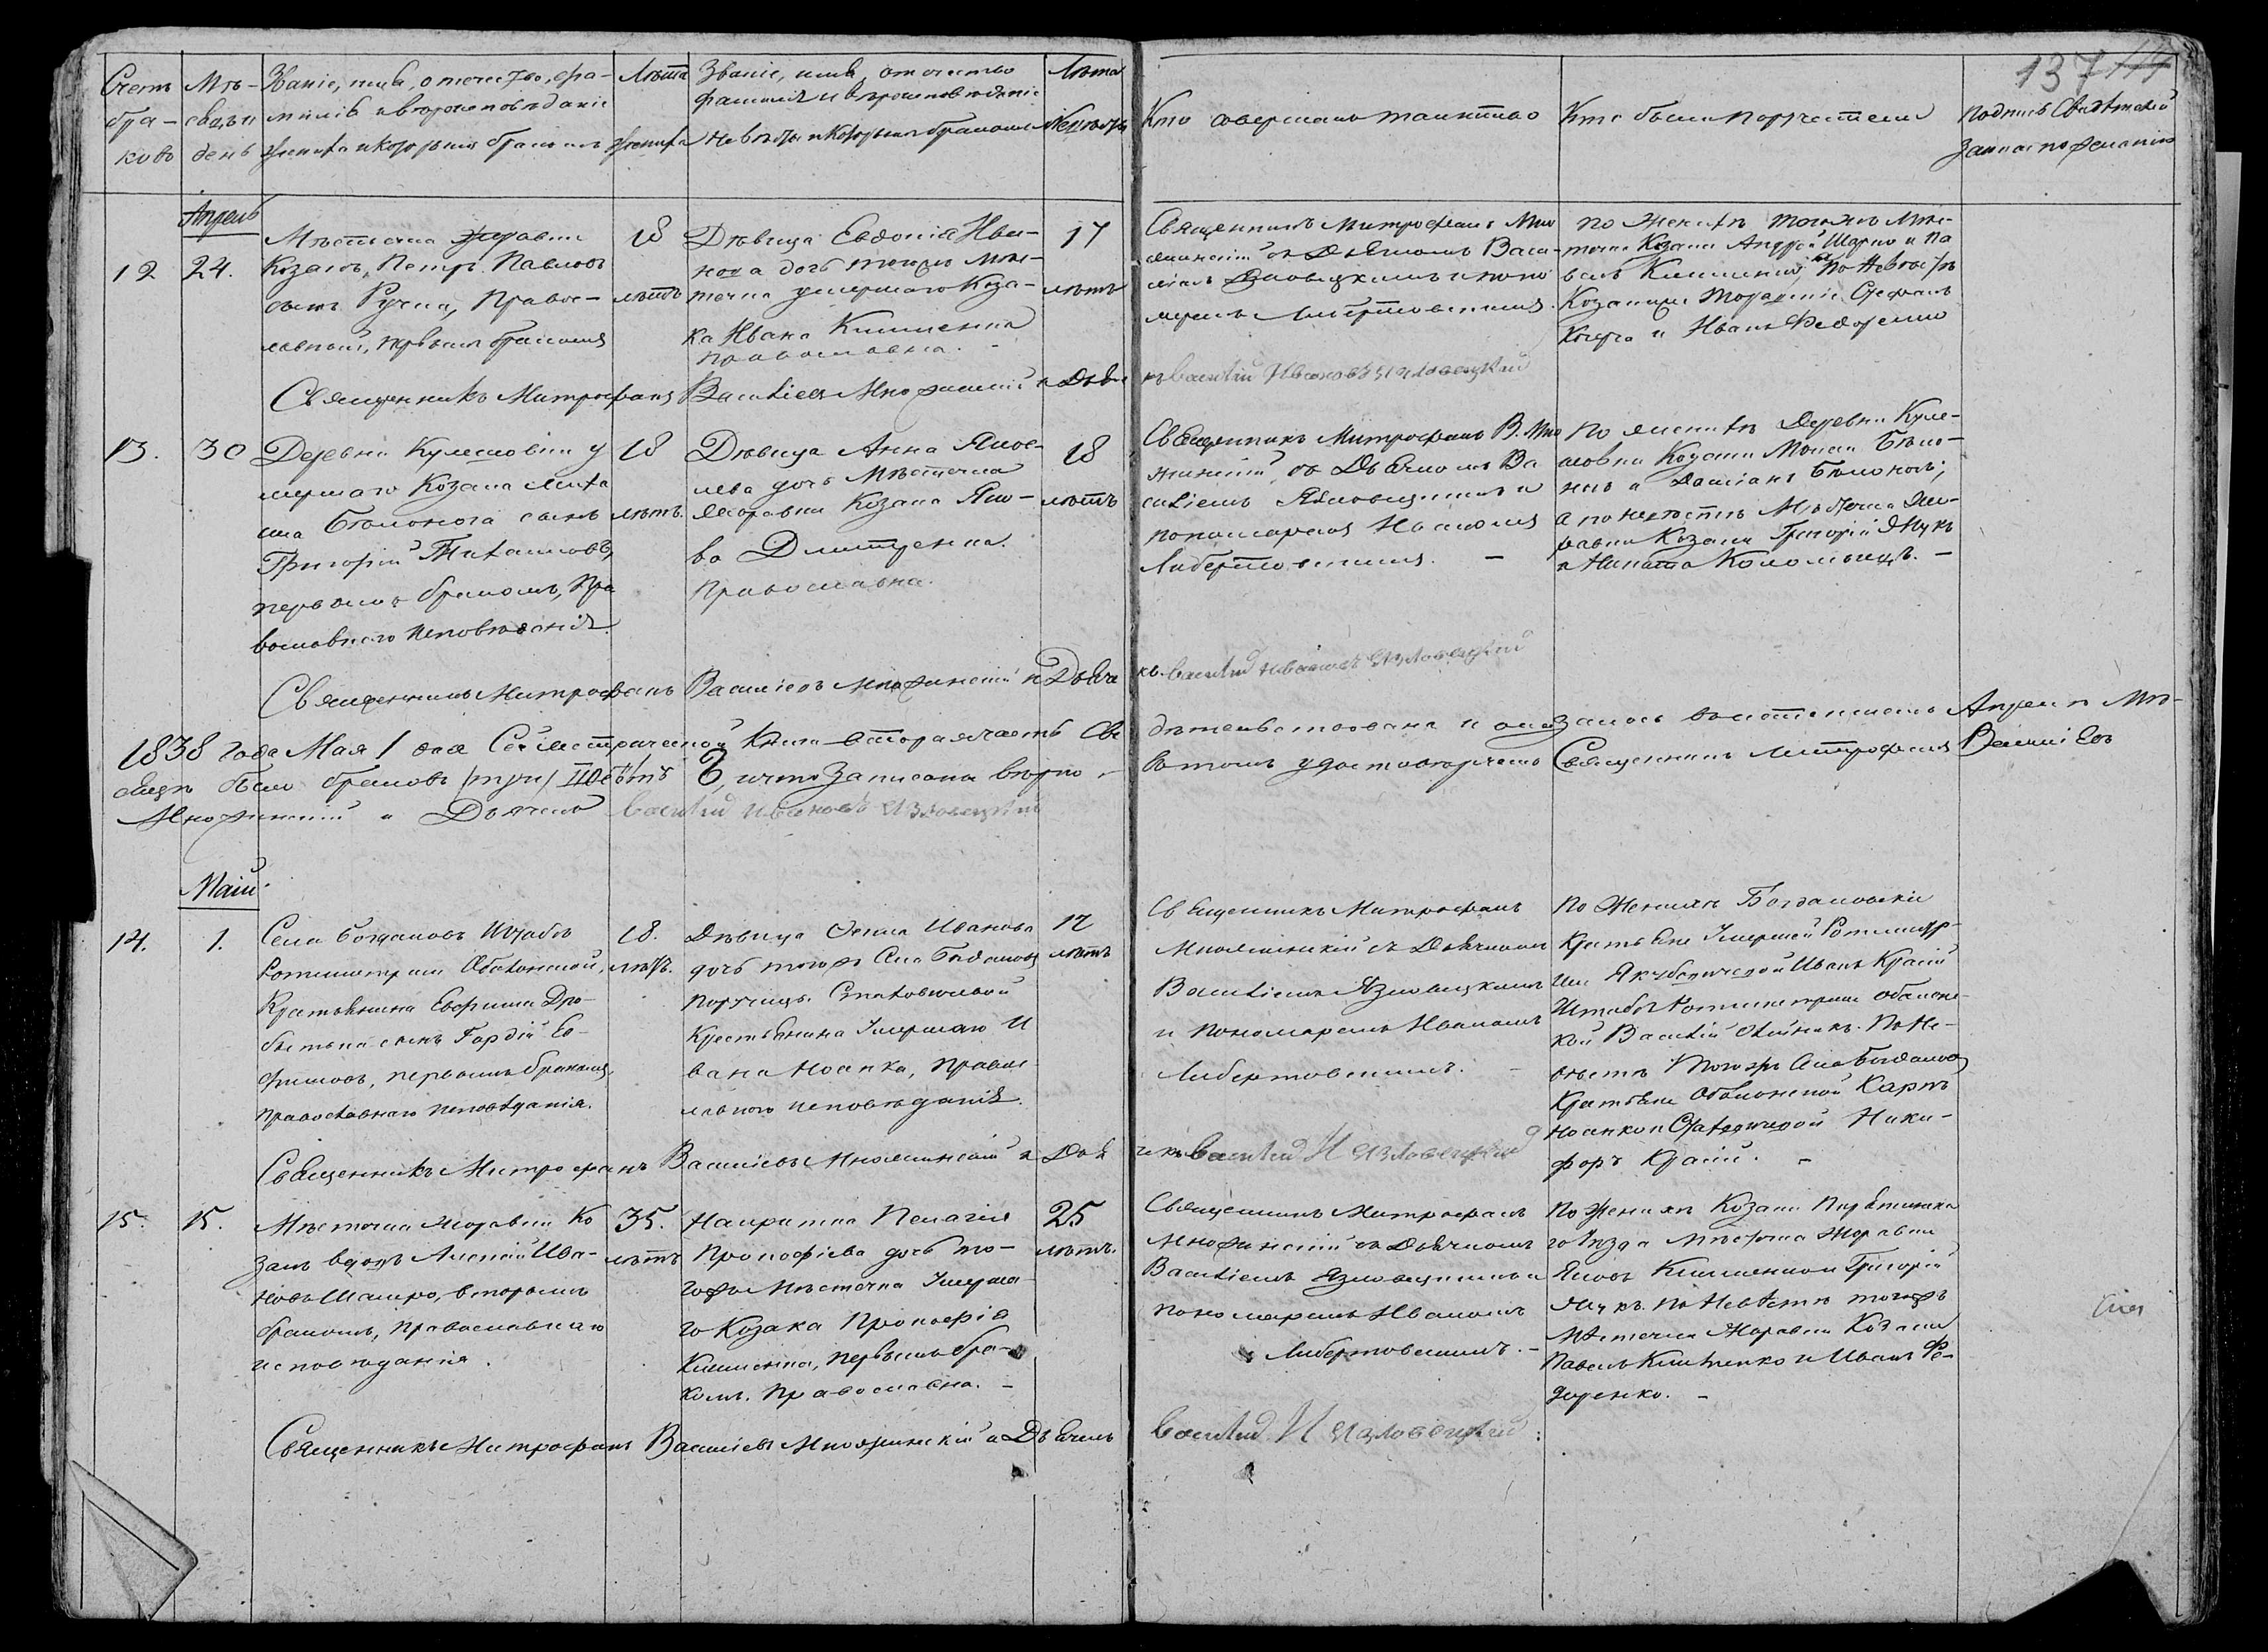 137
Счетъ бра-ковъ
Мѣ-сяцъ и день
Званіе, имя, отечество, фа-
милія и вѣроисповѣданіе
жениха и которымъ бракомъ
Лѣта жениха
Званіе, имя, отечество
фамилія и вѣроисповѣданіе
невѣсты и которымъ бракомъ
Лѣта невѣсты
Кто совершалъ таинство
Кто были поручители
Подпись свидѣтелей
записи по желанію
Апрель
12
24.
Мѣстечка Журавки
Козакъ, Петръ Павловъ
сынъ Ручка, Правос-
лавный, первымъ бракомъ
18
лѣтъ
Дѣвица Евдокія Ива-
нова дочь того мѣс-
течка умершаго Коза-
ка Ивана Кишенка
православна. -
17
лѣтъ
Священникъ Митрофанъ Мно
жинскій съ Дьячкомъ Васи-
ліемъ Язловецкимъ и поно
маремъ Либертовскимъ
По Женихѣ того мѣс-
течка Козаки Андрей Шарко и Па
велъ Кишенко, По Невѣстѣ
Козаки Стефанъ
и Иванъ Федоренко
Священникъ Митрофанъ Василіевъ Множинскій и Дьячекъ Василій Ивановъ Язловецкій
13.
30
Деревни Кулешовки у
мершаго Козака Миха
ила Бѣлонога сынъ
Григорій Михайловъ,
первымъ бракомъ, Пра
вославнаго исповѣданія.
18
лѣтъ.
Дѣвица Анна Яков-
лева дочь Мѣстечка
Журавки Козака Яко-
ва Дмитренка.
Православна.
18
лѣтъ
Священникъ Митрофанъ В. Мно
жинскій, съ Дьячкомъ Ва
силіемъ Язловецкимъ и
пономаремъ Иваномъ
Либертовскимъ. -
По женихѣ Деревни Куле-
шовки Козаки Бѣло-
ногъ и Даміанъ Бѣлоногъ;
а по невѣстѣ Мѣстечка Жу-
равки Козаки Григорій Яцукъ
и Никита Коломыецъ. -
Священникъ Митрофанъ Василіевъ Множинскій и Дьячекъ Василій Ивановъ Язловецкій
1838 года Мая 1 дня Сей Метрической Книги вторая часть Сви дѣтельствована и оказалось бысть писаннымъ Апреля Мѣ-
сяцѣ было браковъ /три/ что записаны вѣрно - въ томъ удостовѣряемъ Священникъ Митрофанъ Василіевъ
Множинскій и Дьячекъ Василій Ивановъ Язловецкій
Маій
14.
1.
Села Богдановъ Штабъ
Ротмистрши Оболонской,
Крестьянина Евфима Дро-
сынъ Гордій Ев-
фимовъ, первымъ бракомъ,
православнаго исповѣданія.
18.
лѣтъ.
Дѣвица Иванова
дочь тогожъ села Богдановъ
поручицы
Крестьянина Умершаго И
вана Носика, Правос-
лавнаго исповѣданія.
17
лѣтъ
Священникъ Митрофанъ
Множинскій съ Дьячкомъ
Василіемъ Язловецкимъ
и Пономаремъ Иваномъ
Либертовскимъ. -
По Женихѣ Богдановскіе
Крестьяне Умершей Ротмистр-
ши Якубовичевой Иванъ Красій
Штабъ Ротмистрши Оболонс-
кой Василій Олійникъ. По Не-
вѣстѣ Тогожъ Села Богдановъ
Крестьяне Оболонской Карпъ
Носикъ и Ники-
форъ Красій. -
Священникъ Митрофанъ Василіевъ Множинскій и Дьячекъ Василій И Язловецкій
15.
15.
Мѣстечка Журавки Ко
закъ вдовъ Алексій Ива-
новъ Шапиро, вторымъ
бракомъ, православнаго
исповѣданія.
35.
лѣтъ
Пелагія
Прокофіева дочь то-
гожъ Мѣстечка Умерша-
го Козака Прокофія
Кишенка, первымъ бра-
комъ. Православна. -
25
лѣтъ.
Священникъ Митрофанъ
Множинскій съ Дьячкомъ
Василіемъ Язловецкимъ и
пономаремъ Иваномъ
Либертовскимъ. -
По Женихѣ Козаки Пирятинска
го Уѣзда Мѣстечка Журавки
Яковъ Кишенко и Григорій
Яцукъ. По Невѣстѣ тогожъ
Мѣстечка Журавки Козаки
Павелъ Кишенко и Иванъ Фе-
доренко. -
Священникъ Митрофанъ Василіевъ Множинскій и Дьячекъ Василій И Язловецкій